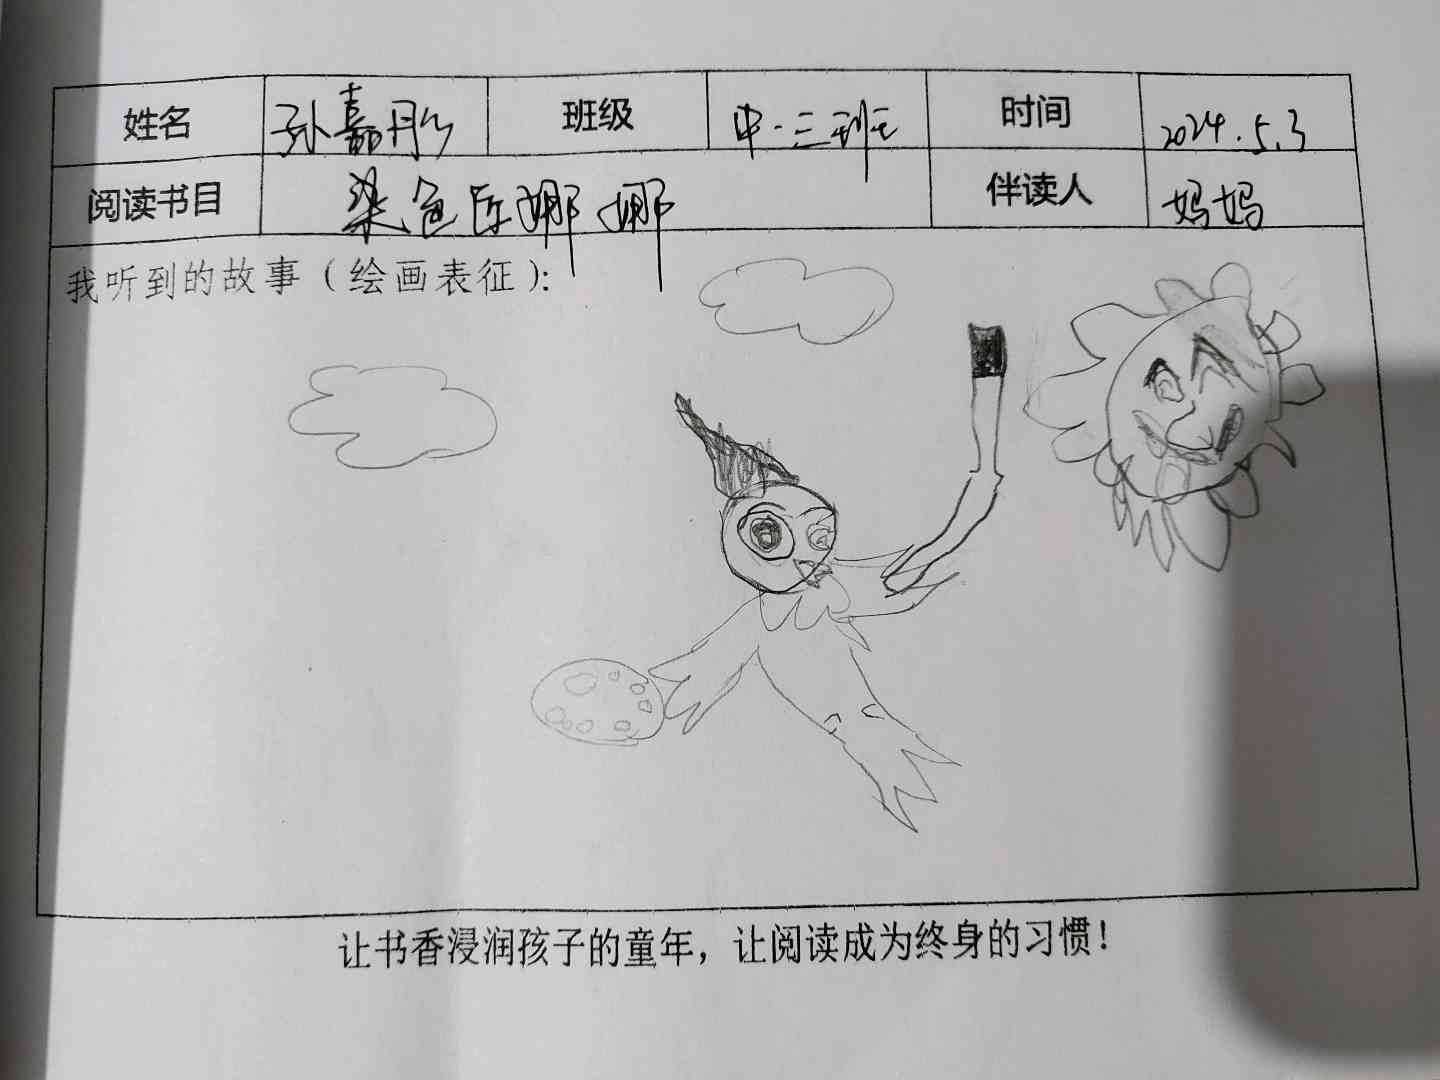 姓名 孙嘉彤 班级 中.三班 时间 2024.5.3
阅读书目 染色店娜娜 伴读人 妈妈
我听到的故事（绘画表征）：
让书香浸润孩子的童年，让阅读成为终身的习惯！